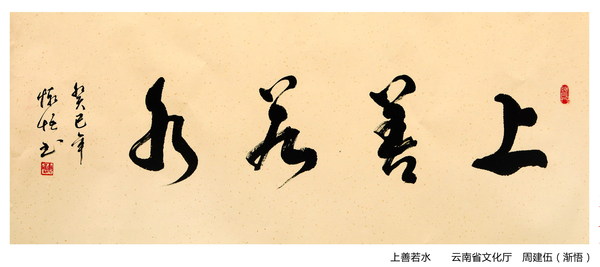 上善若水
癸巳年
渐悟书
上善若水 云南省文化厅 周建伍（渐悟）